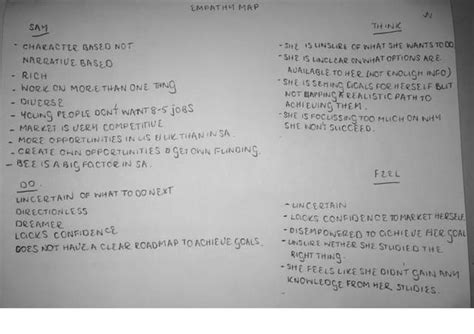 EMPATHY MAP
SAY
- CHARACTER BASED NOT
NARRATIVE BASED
- RICH
- WORK ON MORE THAN ONE THING
- DIVERSE
- YOUNG PEOPLE DON'T WANT 8-5 JOBS
- MARKET IS VERY COMPETITIVE
- MORE OPPORTUNITIES IN US & UK THAN IN SA.
- CREATE OWN OPPORTUNITIES & GET OWN FUNDING.
- BEE IS A BIG FACTOR IN SA.
THINK
- SHE IS UNSURE OF WHAT SHE WANTS TO DO
- SHE IS UNCLEAR ON WHAT OPTIONS ARE
AVAILABLE TO HER (NOT ENOUGH INFO)
- SHE IS SETTING GOALS FOR HERSELF BUT
NOT MAPPING A REALISTIC PATH TO
ACHIEVING THEM.
- SHE IS FOCUSSING TOO MUCH ON WHY
SHE WON'T SUCCEED.
DO
UNCERTAIN OF WHAT TO DO NEXT
DIRECTIONLESS
DREAMER
LACKS CONFIDENCE
DOES NOT HAVE A CLEAR ROADMAP TO ACHIEVE GOALS.
FEEL
- UNCERTAIN
- LACKS CONFIDENCE TO MARKET HERSELF
- DISEMPOWERED TO ACHIEVE HER GOAL
- UNSURE WETHER SHE STUDIED THE
RIGHT THING.
- SHE FEELS LIKE SHE DIDNT GAIN ANY
KNOWLEDGE FROM HER STUDIES.